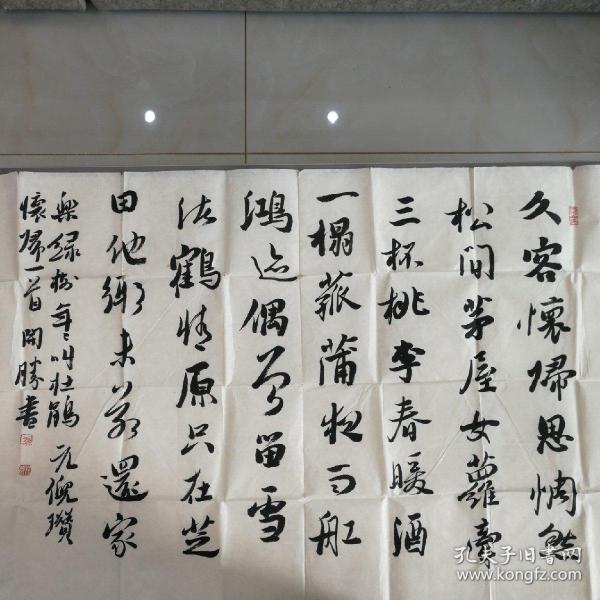 久客懷歸思惘然
松間茅屋女蘿牽
三杯桃李春暖酒
一榻菰蒲夜雨船
鴻迹偶曾留雪
渚鶴情原只在芝
田他鄉未若還家
樂綠樹年年叫杜鵑 元倪瓚
懷歸一首 開勝書
孔夫子旧書网
www.kongfz.com